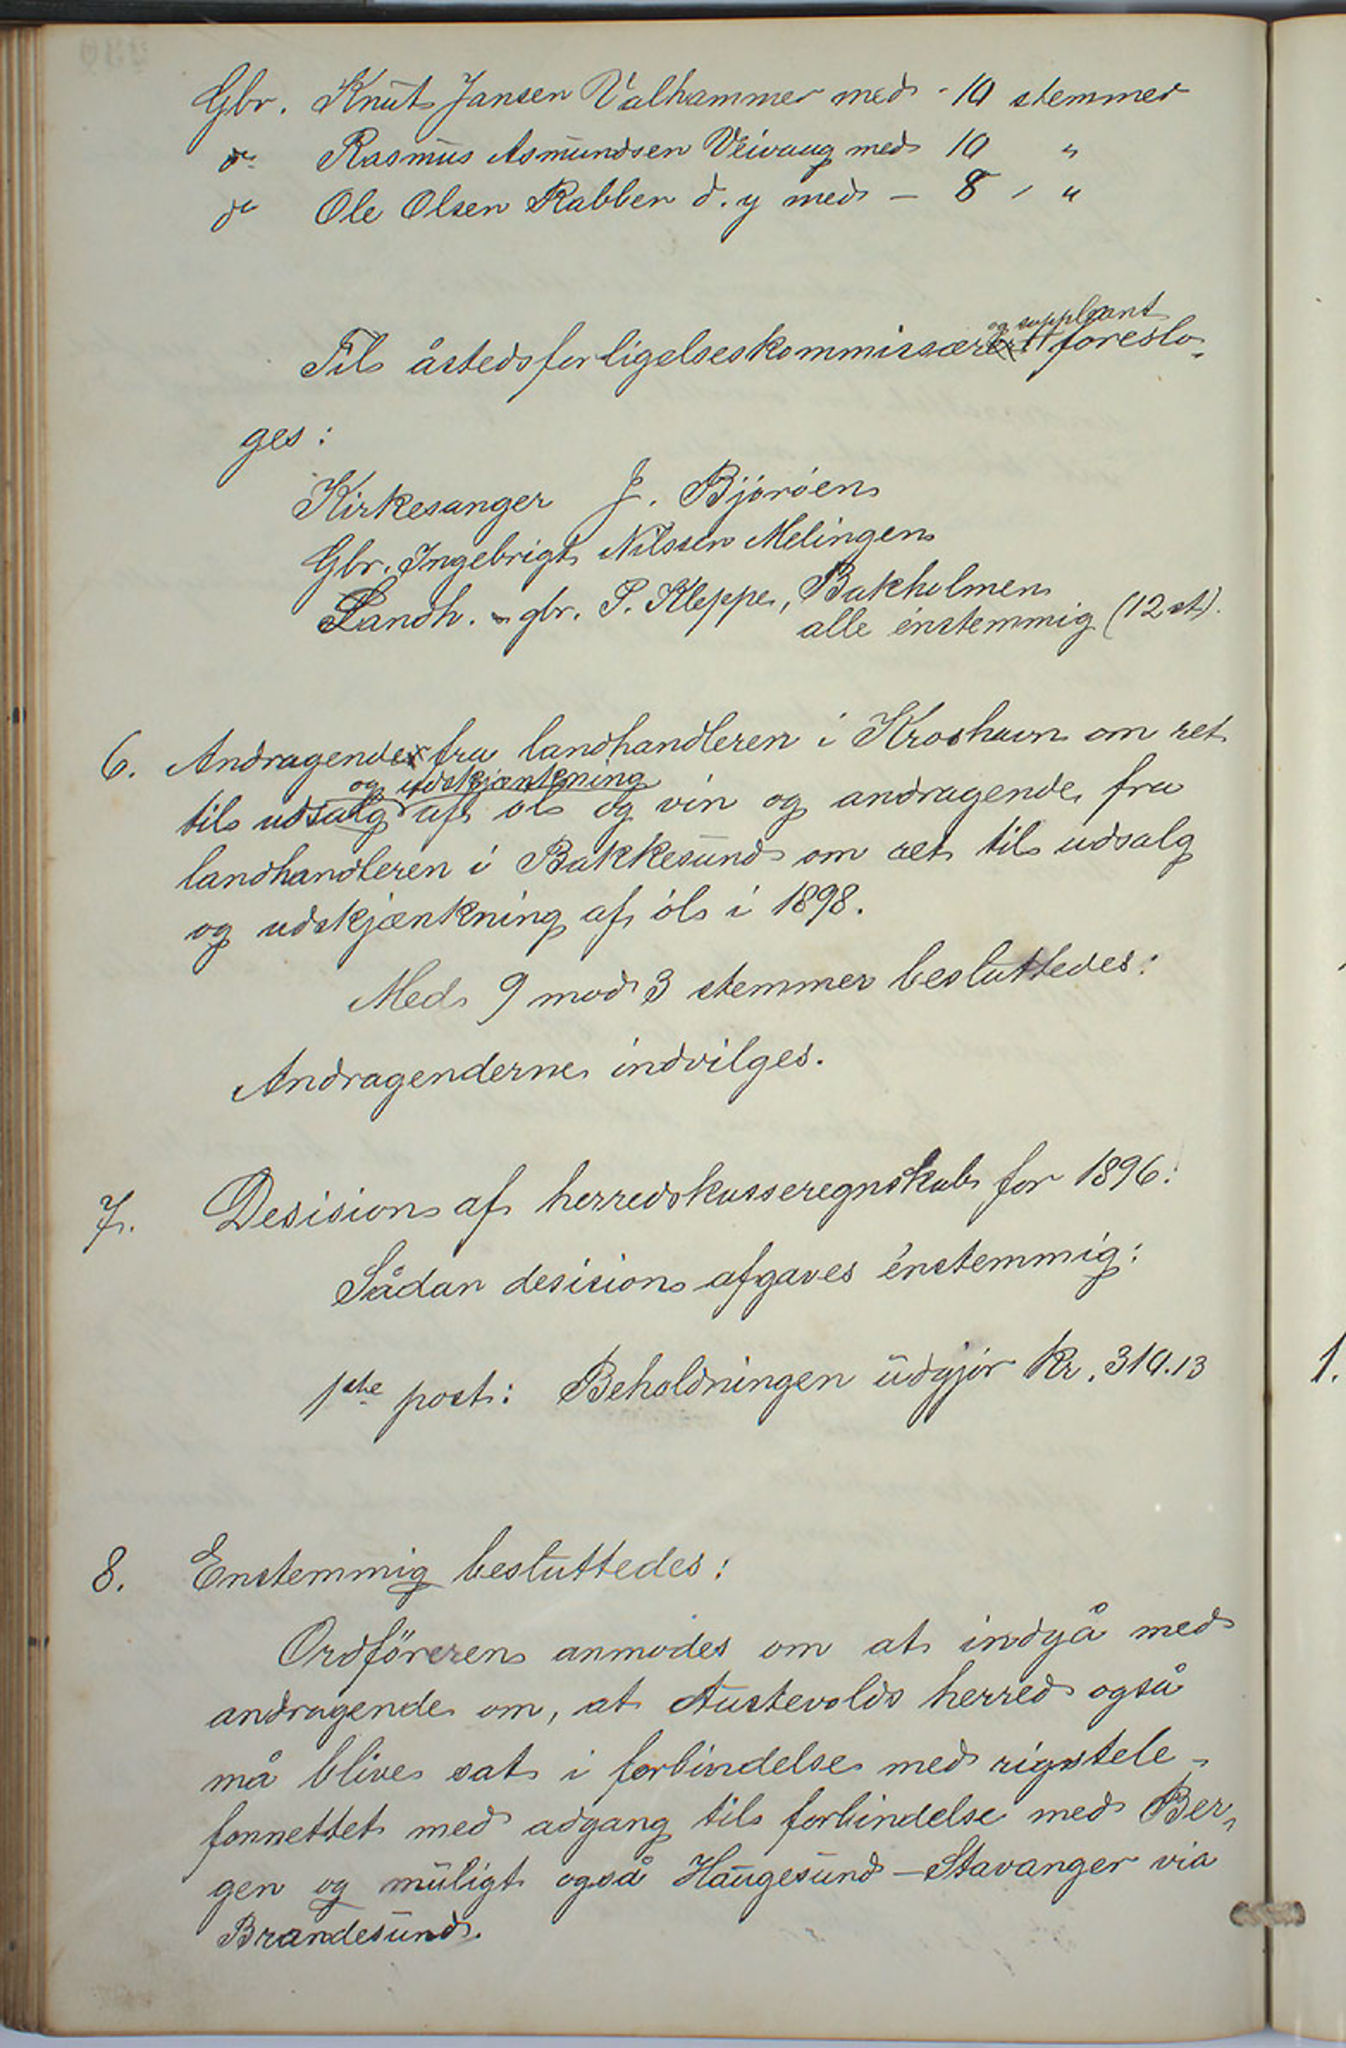 Gbr. Knut Jansen Valhammer med - 10 stemmer
do Rasmus Asmundsen Veivaag med 10 "
do Ole Olsen Rabben d. y med - 8 - "
og suppleant
Til åstedsforligelseskommissær foreslo-
ges:
Kirkesanger J. Bjørøen
Gbr. Ingebrigt Nilssen Melingen
Landh. & gbr. P. Kleppe, Bakholmen
alle énstemmig (12 st).
6. Andragende fra landhandleren i Kroshavn om ret
og udskjænkning
til udsalg af øl og vin og andragende fra
landhandleren i Bakkesund om ret til udsalg
og udskjænkning af øl i 1898.
Med 9 mod 3 stemmer besluttedes:
Andragenderne indvilges.
7. Desision af herredskasseregnskab for 1896.
Sådan desision afgaves énstemmig:
1ste post: Beholdningen udgjør Kr. 310.13
8. Enstemmig besluttedes:
Ordføreren anmodes om at indgå med
andragende om, at Austevolds herred også
må blive sat i forbindelse med rigstele-
fonnettet med adgang til forbindelse med Ber-
gen og muligt også Haugesund - Stavanger via
Brandesund.
1.